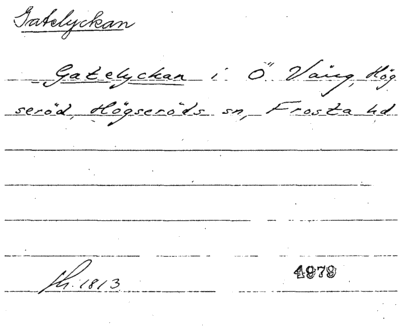 Gatelyckan
Gatelyckan i Ö Väng, Hög
seröd, Högseröds sn, Frosta hd
1813
4979